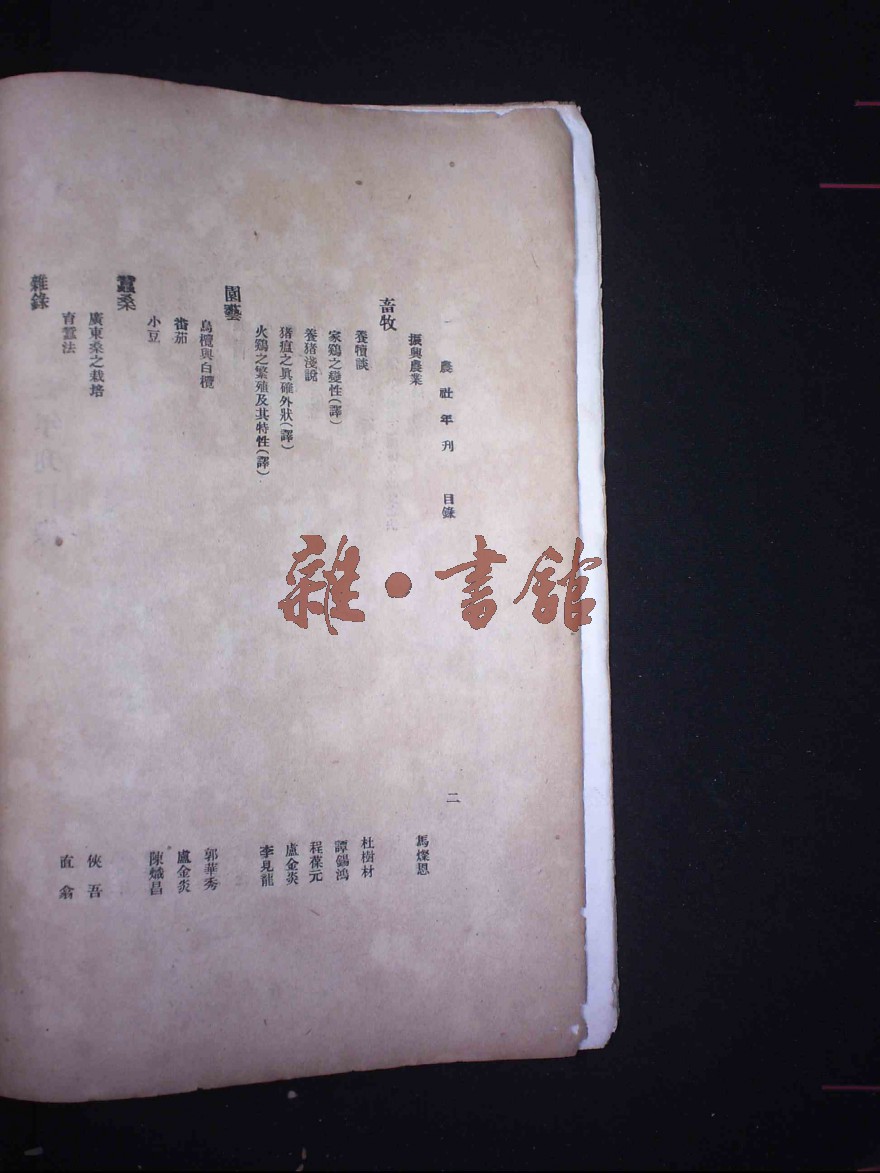 農社年刊 目錄 二
振興農業 馮燦恩
畜牧
養犢談 杜樹材
家鷄之變性(譯) 譚錫鴻
養猪淺說 程葆元
猪瘟之眞確外狀(譯) 盧金炎
火鷄之繁殖及其特性(譯) 李見龍
園藝
烏欖與白欖 郭華秀
番茄 盧金炎
小豆 陳熾昌
蠶桑
廣東桑之栽培 俠吾
育蠶法 直翁
雜錄
雜·書館